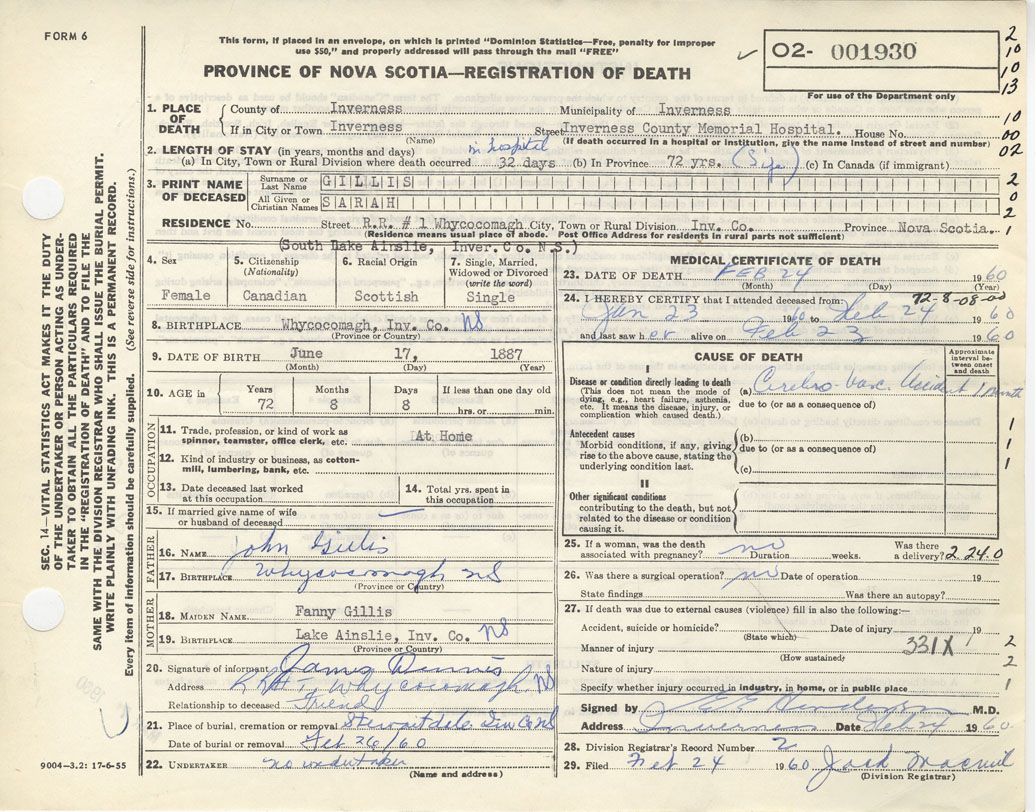 FORM 6
This form, if placed in an envelope, on which is printed "Dominion Statistics—Free, penalty for improper
use $50," and properly addressed will pass through the mail "FREE"
PROVINCE OF NOVA SCOTIA—REGISTRATION OF DEATH
02- 001930
For use of the Department only
2
10
10
13
10
00
02
2
0
2
1
1. PLACE OF DEATH { County of Inverness Municipality of Inverness
If in City or Town Inverness Street Inverness County Memorial Hospital. House No.
(Name) (If death occurred in a hospital or institution, give the name instead of street and number)
2. LENGTH OF STAY (in years, months and days) in hospital
(a) In City, Town or Rural Division where death occurred 32 days (b) In Province 72 yrs. (c) In Canada (if immigrant)
3. PRINT NAME OF DECEASED
Surname or Last Name GILLIS
All Given or Christian Names SARAH
RESIDENCE No. Street R.R. # 1 Whycocomagh City, Town or Rural Division Inv. Co. Province Nova Scotia.
(Residence means usual place of abode. Post Office Address for residents in rural parts not sufficient)
(South Lake Ainslie, Inver. Co. N.S.)
4. Sex Female
5. Citizenship (Nationality) Canadian
6. Racial Origin Scottish
7. Single, Married, Widowed or Divorced (write the word) Single
8. BIRTHPLACE Whycocomagh, Inv. Co. NS
(Province or Country)
9. DATE OF BIRTH June 17, 1887
(Month) (Day) (Year)
10. AGE in Years 72 Months 8 Days 8 If less than one day old hrs. or min.
OCCUPATION
11. Trade, profession, or kind of work as spinner, teamster, office clerk, etc. At Home
12. Kind of industry or business, as cotton-mill, lumbering, bank, etc.
13. Date deceased last worked at this occupation
14. Total yrs. spent in this occupation
15. If married give name of wife or husband of deceased —
FATHER
16. NAME John Gillis
17. BIRTHPLACE Whycocomagh NS
(Province or Country)
MOTHER
18. MAIDEN NAME Fanny Gillis
19. BIRTHPLACE Lake Ainslie, Inv. Co. NS
(Province or Country)
20. Signature of informant James
Address RR#1 Whycocomagh NS
Relationship to deceased Friend
21. Place of burial, cremation or removal Stewartdale Inv Co NS
Date of burial or removal Feb 26/60
22. UNDERTAKER no undertaker
(Name and address)
MEDICAL CERTIFICATE OF DEATH
23. DATE OF DEATH FEB 24 1960
(Month) (Day) (Year)
72-8-08-00
24. I HEREBY CERTIFY that I attended deceased from:
Jan 23 1960 to Feb 24 1960
and last saw her alive on Feb 23 1960
CAUSE OF DEATH
Approximate interval between onset and death
I
Disease or condition directly leading to death
(This does not mean the mode of dying, e.g., heart failure, asthenia, etc. It means the disease, injury, or complication which caused death.)
(a) Cerebro-Vasc. Accident 1 month
due to (or as a consequence of)
Antecedent causes
Morbid conditions, if any, giving rise to the above cause, stating the underlying condition last.
(b)
due to (or as a consequence of)
(c)
II
Other significant conditions
contributing to the death, but not related to the disease or condition causing it.
1
1
1
25. If a woman, was the death associated with pregnancy? no Duration weeks. Was there a delivery? 2.24.0
26. Was there a surgical operation? no Date of operation 19
State findings Was there an autopsy?
27. If death was due to external causes (violence) fill in also the following:—
Accident, suicide or homicide? Date of injury 19
(State which)
Manner of injury 331X
(How sustained)
Nature of injury
Specify whether injury occurred in industry, in home, or in public place
2
2
1
Signed by M.D.
Address Inverness Date Feb 24 1960
28. Division Registrar's Record Number 2
29. Filed Feb 24 1960
(Division Registrar)
SEC. 14—VITAL STATISTICS ACT MAKES IT THE DUTY
OF THE UNDERTAKER OR PERSON ACTING AS UNDER-
TAKER TO OBTAIN ALL THE PARTICULARS REQUIRED
IN THE "REGISTRATION OF DEATH" AND TO FILE THE
SAME WITH THE DIVISION REGISTRAR WHO SHALL ISSUE THE BURIAL PERMIT.
WRITE PLAINLY WITH UNFADING INK. THIS IS A PERMANENT RECORD.
Every item of information should be carefully supplied. (See reverse side for instructions.)
9004—3.2: 17-6-55